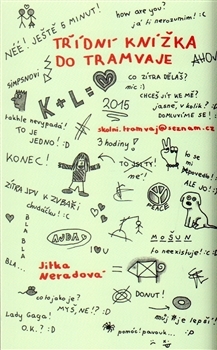 NÉÉ! JEŠTĚ 5 MINUT!
how are you?
já ti nerozumím! :(
TŘÍDNÍ KNÍŽKA
DO TRAMVAJE
AHOJ
SIMPSNOVI
CO ZÍTRA DĚLÁŠ?
nic :)
CHCEŠ JÍT KE MĚ?
jasně, v kolik? :D
DOMLUVÍME SE!
K + L =
2015
skolni.tramvaj@seznam.cz
takhle nevypadá!
TO JE
JEDNO! :D
3 hodiny!
KONEC!
TO JSI TY!
ne!
to se mi
ALE jo!
ZÍTRA JDU K ZUBAŘI!
chudáčku! :(
BLA
BLA
BLA...
AUDA
MOŠUN
to neexistuje! :D
Jitka
Neradová
co to jako je?
MYŠ, NE!? :D
DONUT!
Lady Gaga!
O.K.? :D
můj je lepší!
pomóc! pavouk...